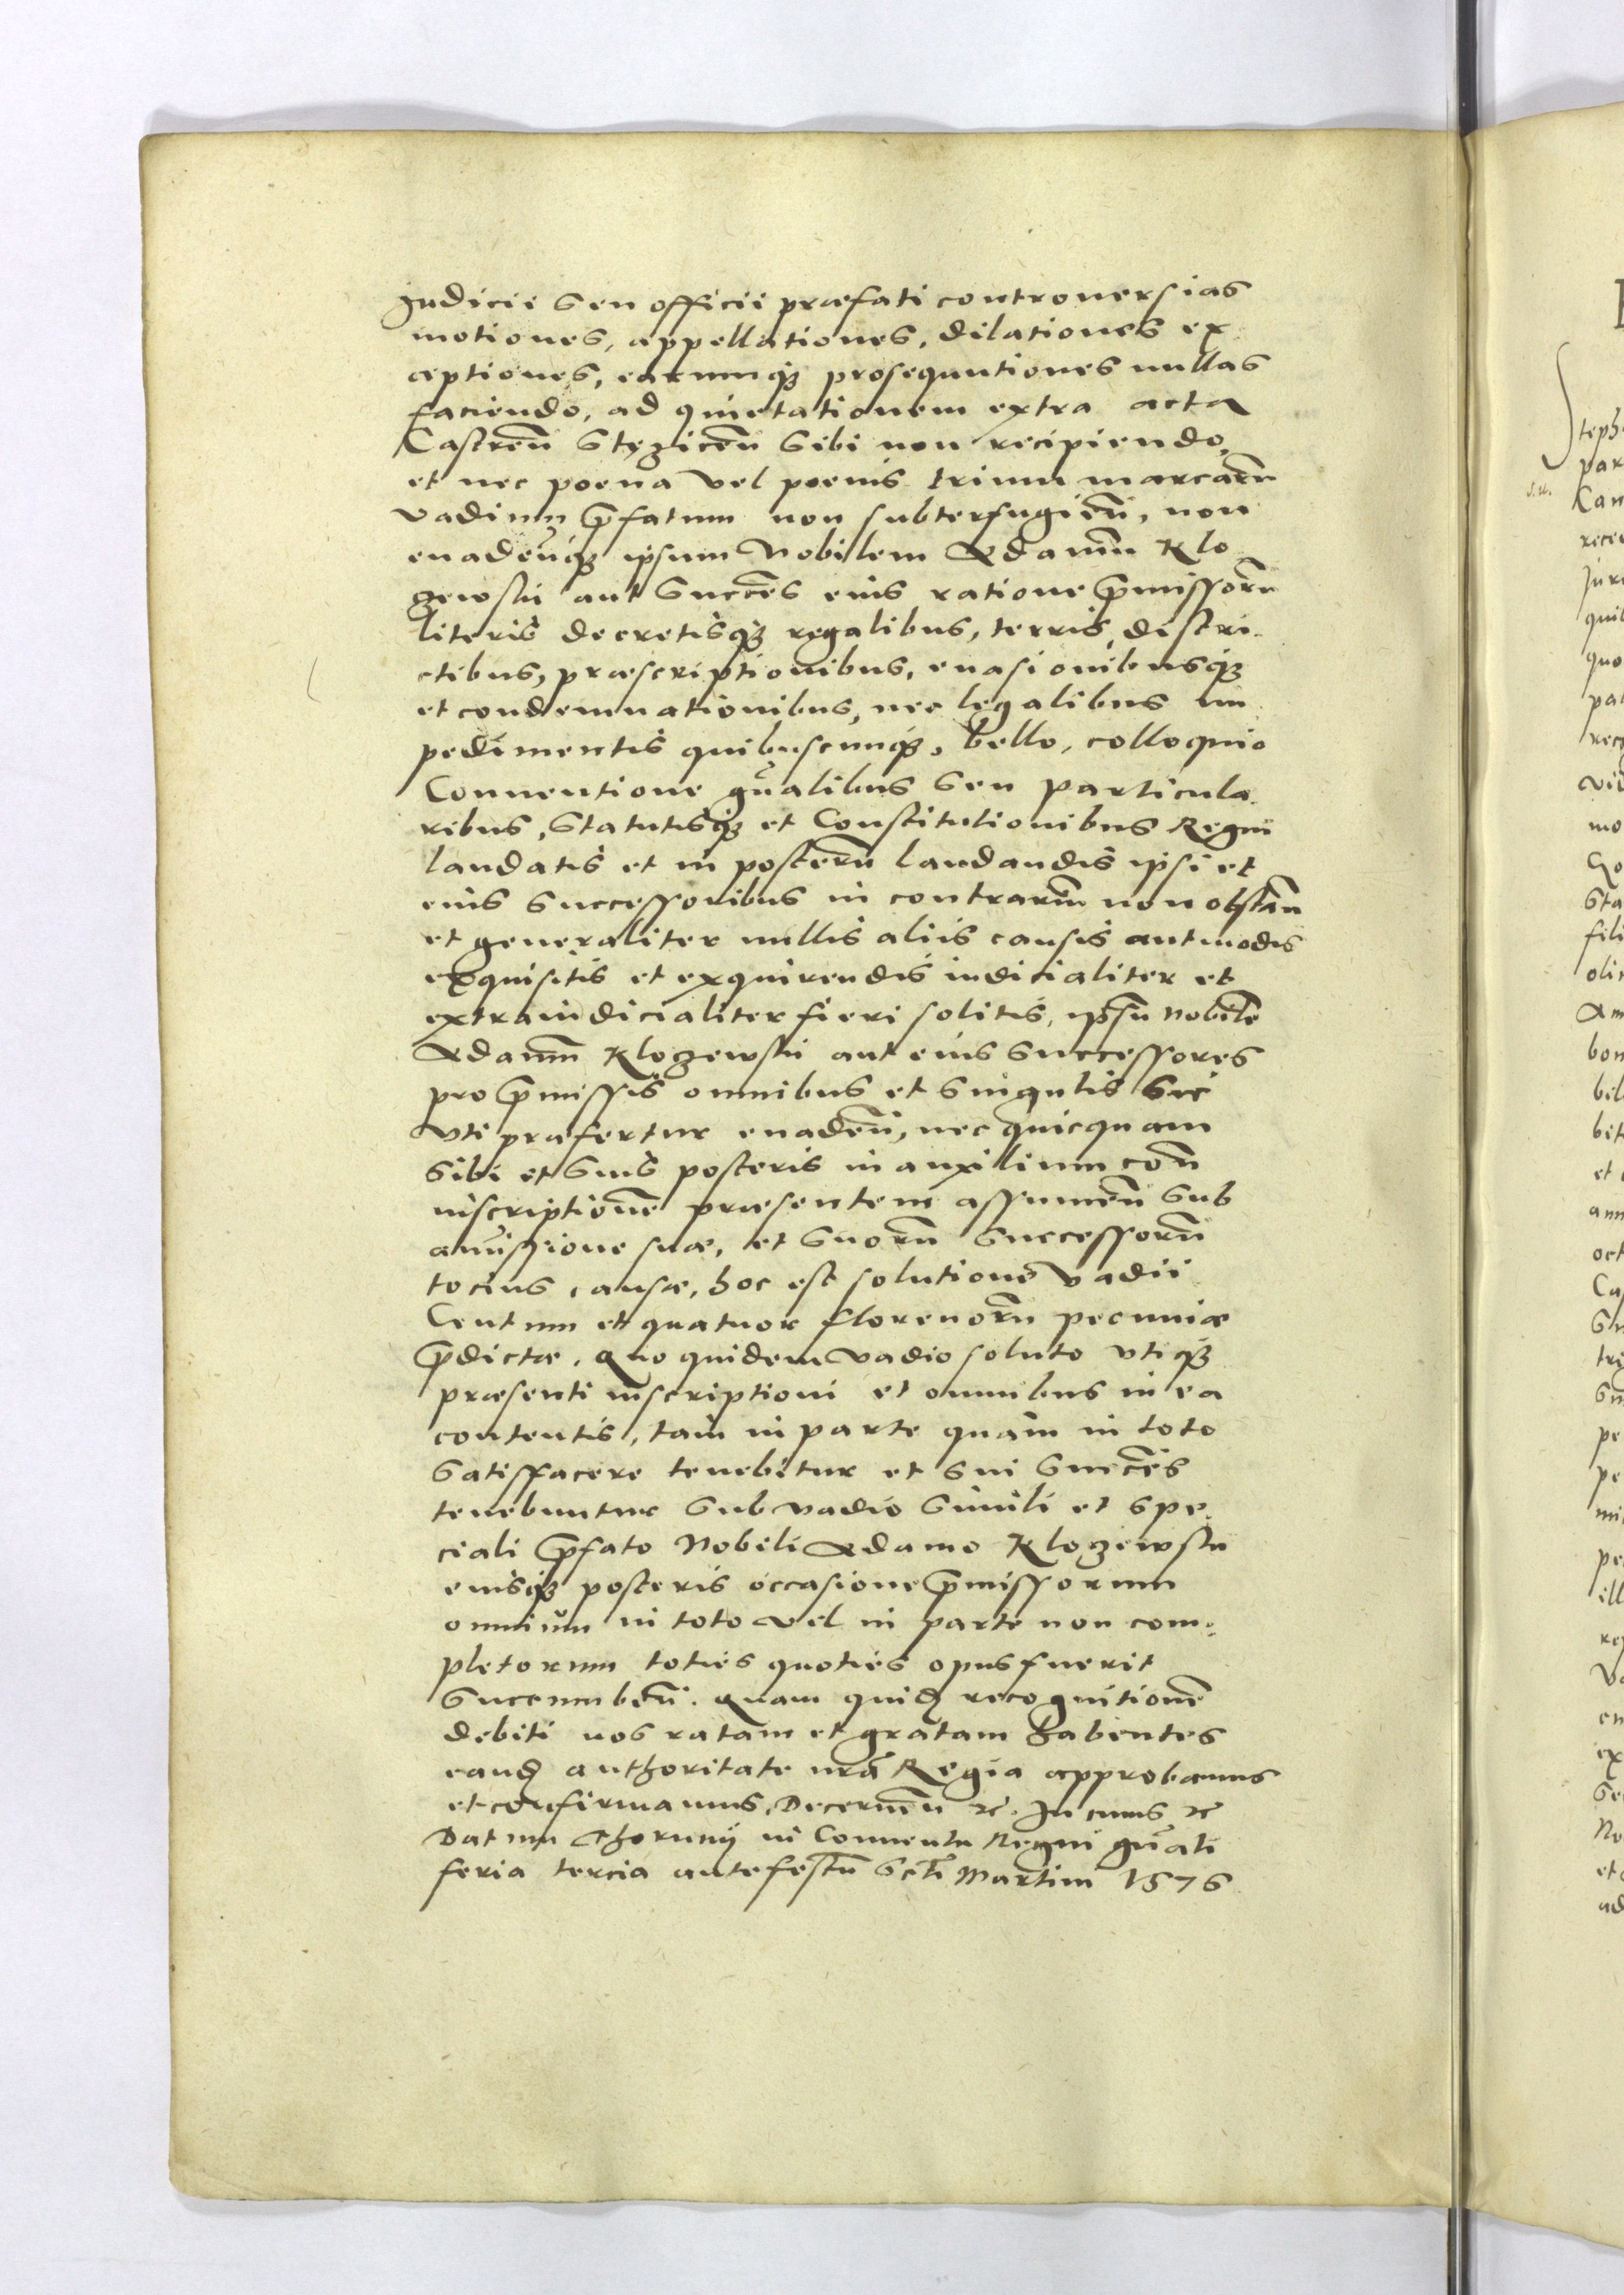 Judicii seu officii præfati controuersias
motiones, appellationes, dilationes ex
ceptiones, earumq́ꝫ prosequutiones nullas
faciendo, ad quietationem extra acta
Castreñ Stęziceñ sibi non recipiendo,
et nec poena vel poenis trium marcarũ
vadiuꝫ p̃fatum non subterfugieñ, non
euadeñq́ꝫ ipsum Nobilem Adamũ Klo
zewski aut Succẽs eius ratione p̃missorũ
literis decretisq́ꝫ regalibus, terris, distri-
ctibus, præscriptionibus, euasionibusq́ꝫ
et condemnationibus, nec legalibus im
pedimentis quibuscunq́ꝫ, bello, colloquio
Conuentione gñalibus seu particula-
ribus, Statutisq́ꝫ et Constitutionibus Regni
laudatis et in posterũ laudandis ipsi et
eius successoribus in contrariũ non obstañ
et generaliter nullis aliis causis aut modis
exquisitis et exquirendis iudicialiter et
extraiudicialiter fieri solitis, ipsũ nobilẽ
Adamũ Klozewski aut eius successores
pro p̃missis omnibus et singulis sic
vti præfertur euadeñ, nec quicquam
sibi et suis posteris in auxilium coñ
inscriptionẽ præsentem assumeñ sub
amissione suæ, et suorũ successorũ
tocius causæ, hoc est solutione vadii
Centum et quatuor florenorũ pecuniæ
p̃dictæ. Quo quidem vadio soluto vtiq́ꝫ
præsenti inscriptioni et omnibus in ea
contentis, tam in parte quàm in toto
satisfacere tenebitur et sui succẽs
tenebuntur sub vadio simili et spe-
ciali p̃fato Nobili Adamo Klozewski
eiusq́ꝫ posteris occasione p̃missorum
omnium in toto vel in parte non com-
pletorum toties quoties opus fuerit
succumbeñ. Quam quid̃ recognitionẽ
debiti nos ratam et gratam habentes
eand̃ authoritate nr̃a Regia approbamus
et confirmamus, Decerneñ ꝛc̃. In cuius ꝛc̃
Datum Thorunij in Conuentu Regni gñali
feria tercia ante festũ Scti Martini 1576